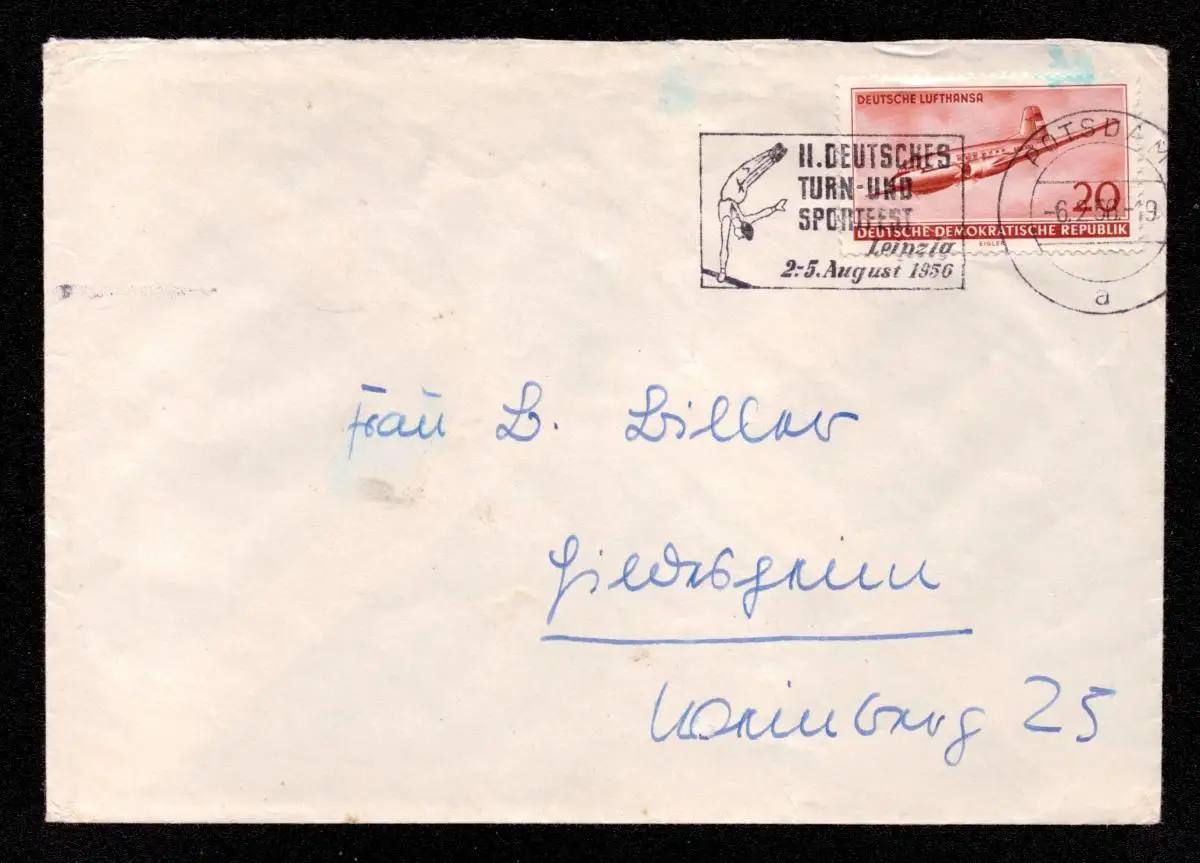 DEUTSCHE LUFTHANSA
20
DEUTSCHE DEMOKRATISCHE REPUBLIK
EIGLER
II. DEUTSCHES
TURN-UND
SPORTFEST
Leipzig
2.-5. August 1956
POTSDAM
-6.2.56.-19
a
Frau B. Biller
Hildesheim
Weinberg 25